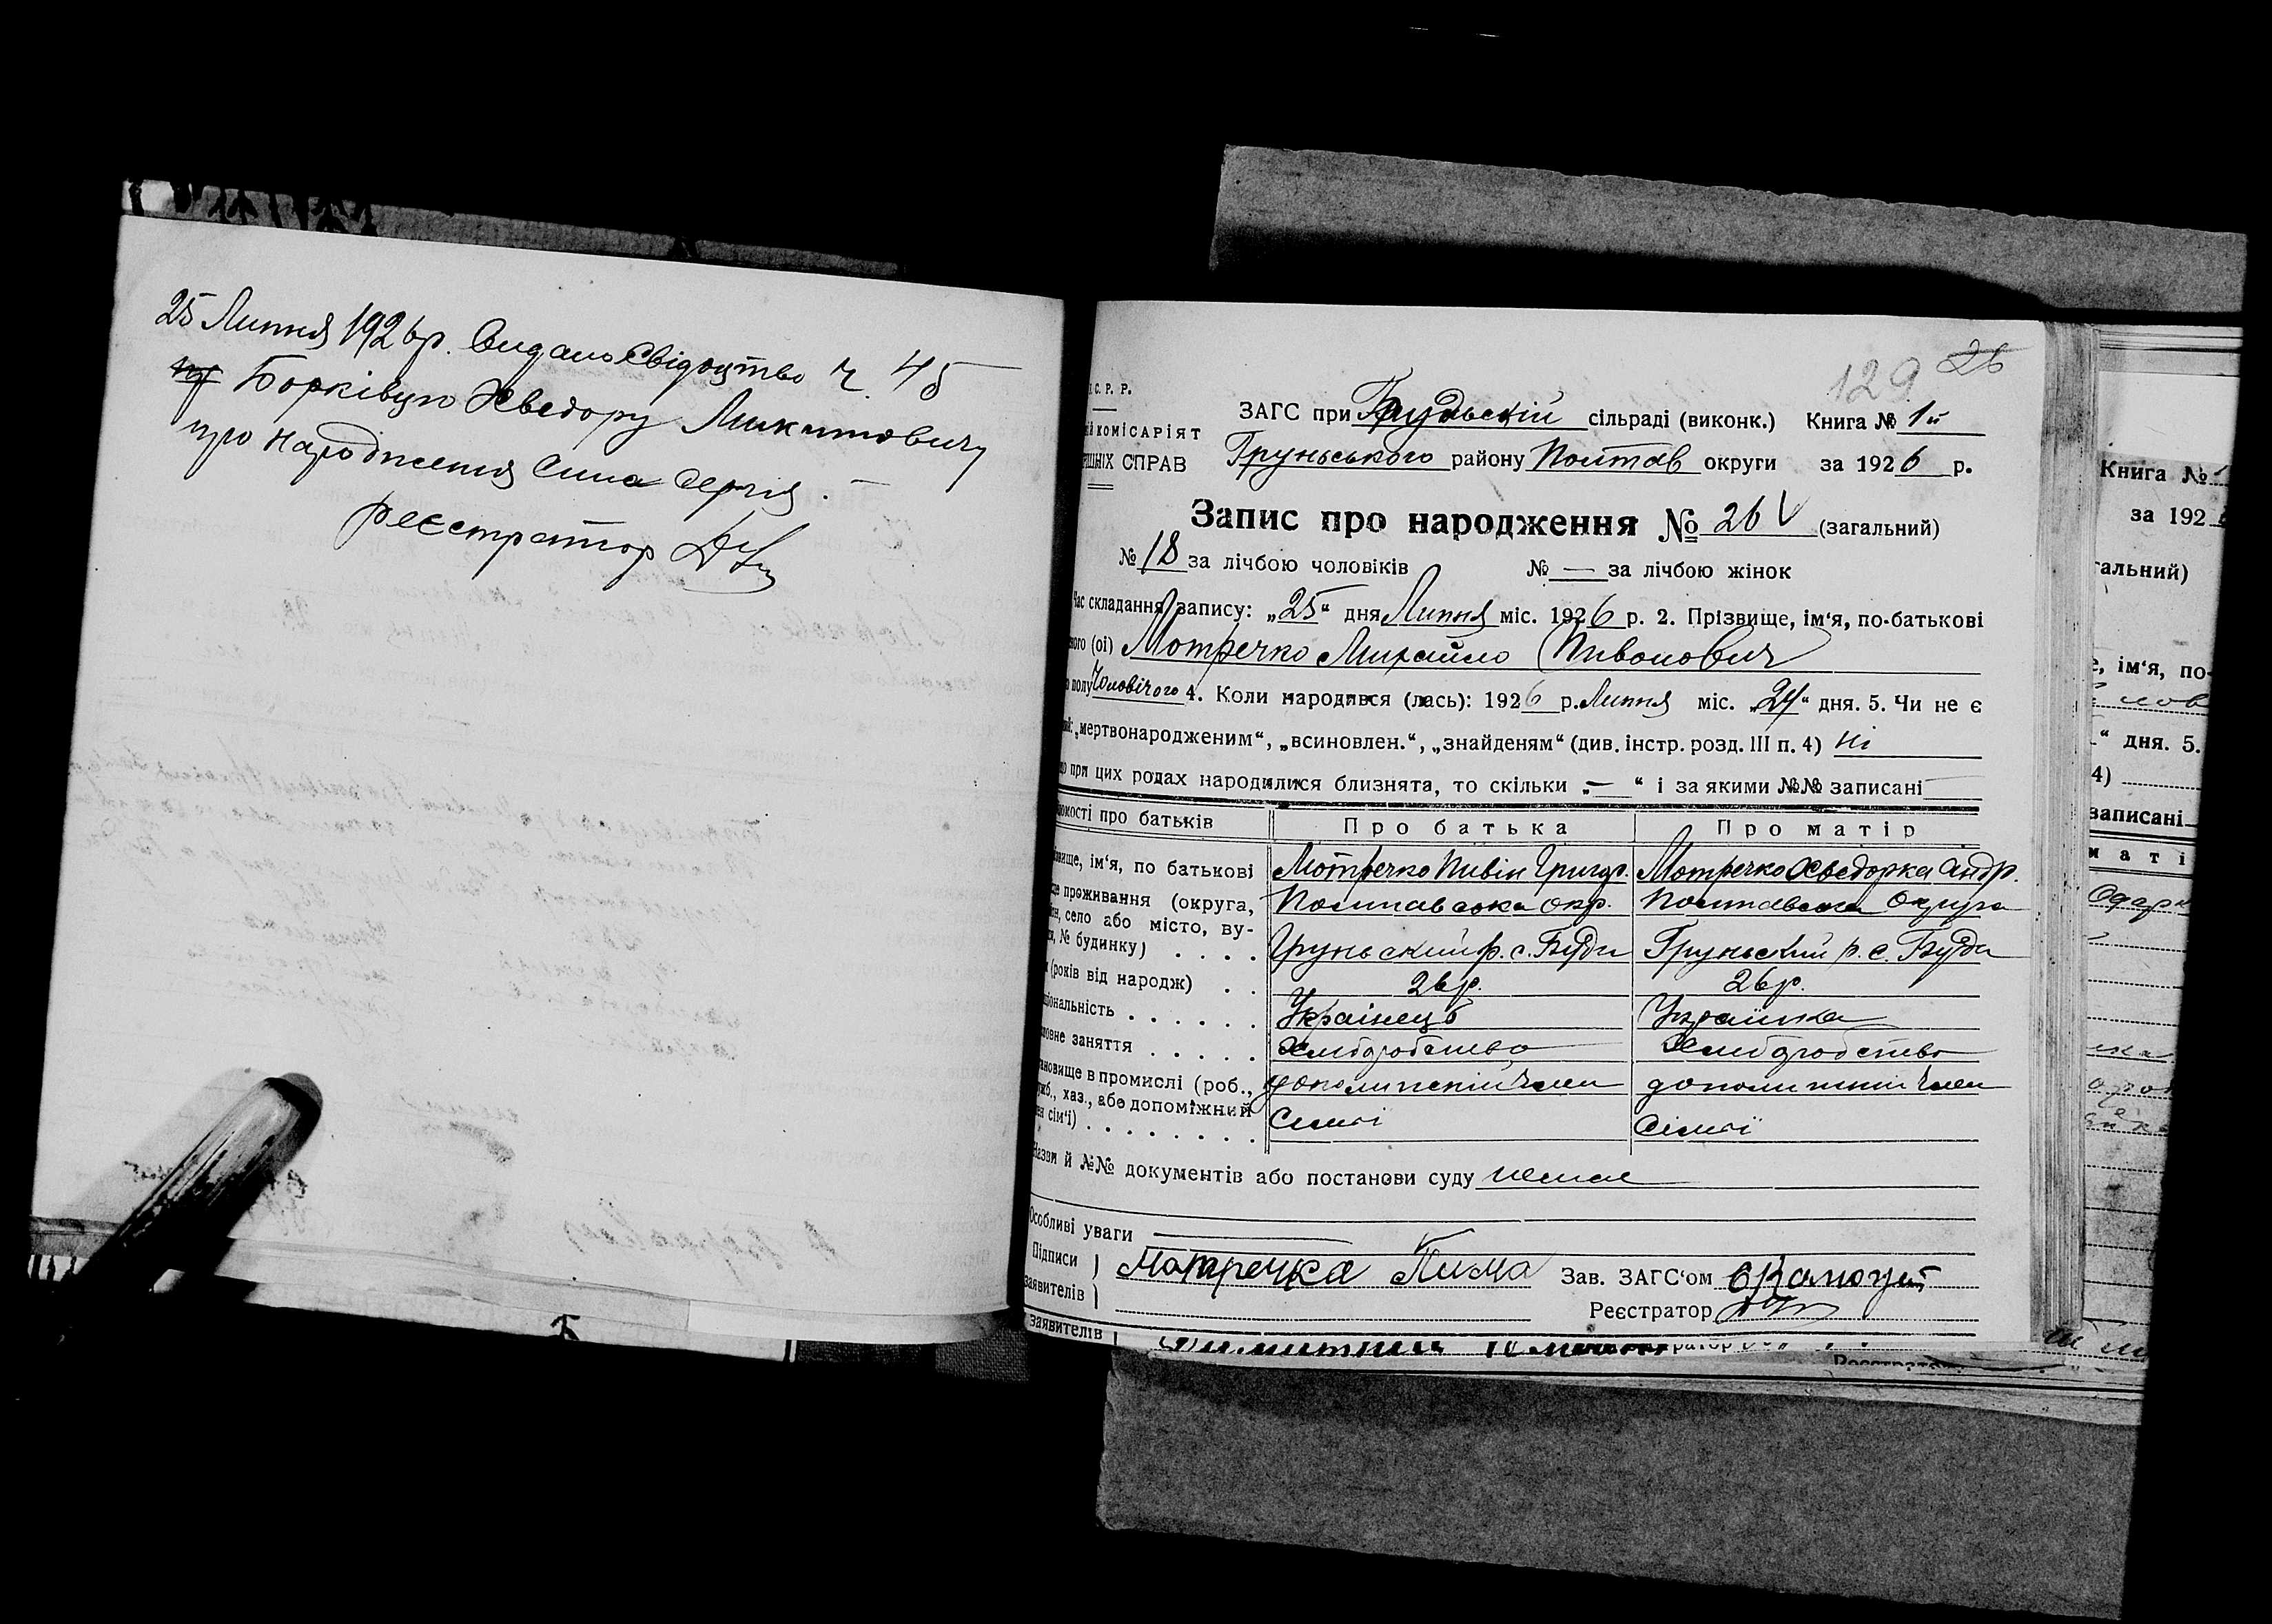 25 Липня 1926р. Видано Свідоцтво Ч. 45
Борківцю Хведору Микитовичу
про народження Сина Сергія. —
реєстратор
129 26
С. Р. Р.
КОМІСАРІЯТ
СПРАВ
ЗАГС при Будьській сільраді (виконк.) Книга № 1й
Груньського району Полтав округи за 1926 р.
Запис про народження № 26 V (загальний)
№ 18 за лічбою чоловіків № — за лічбою жінок
Час складання запису: „25“ дня Липня міс. 1926 р. 2. Прізвище, ім‘я, по-батькові
ного (ої) Мотречко Михайло Пивонович
полу Чоловічого 4. Коли народився (лась): 1926 р. Липня міс. „24“ дня. 5. Чи не є
„мертвонародженим“, „всиновлен.“, „знайденям“ (див. інстр. розд. III п. 4) Ні
при цих родах народилися близнята, то скільки „—“ і за якими №№ записані
домості про батьків Про батька Про матір
звище, ім‘я, по батькові Мотречко Пивін Григор. Мотречко Хведорка Андр.
проживання (округа, Полтавська окр. Полтавська Округа
село або місто, ву-
№ будинку) . . . . Груньский р. с. Буди Груньский р. с. Буди
(років від народж) . . 26р. 26р.
ціональність . . . . . . Українець Українка
ловне заняття . . . . . Хлиборобство Хлиборобство
тановище в промислі (роб., дополижний член дополижний член
служб., хаз., або допоміжний
член сім‘ї) . . . . . . . . Семьї Сімьї
Назви й №№ документів або постанови суду немає
Особливі уваги
Підписи ) Мотречка Пима Зав. ЗАГС‘ом
заявителів ) Реєстратор
заявителів
Книга №
за 192
гальний)
е, ім‘я, по-
“ дня. 5.
4)
записані
маті